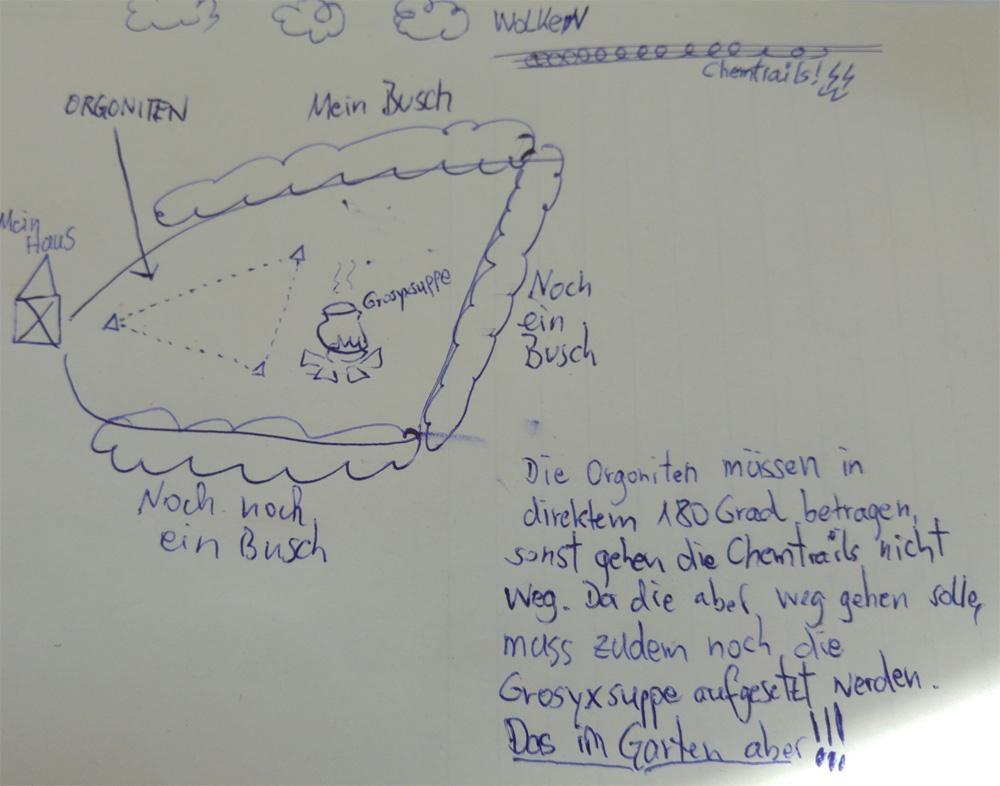 WOLKEN
Chemtrails!
ORGONITEN
Mein Busch
Mein
HAUS
Grosyxsuppe
Noch
ein
Busch
Noch noch
ein Busch
Die Orgoniten müssen in
direktem 180 Grad betragen,
sonst gehen die Chemtrails nicht
weg. Da die aber weg gehen solle,
muss zudem noch die
Grosyxsuppe aufgesetzt werden.
Das im Garten aber!!!